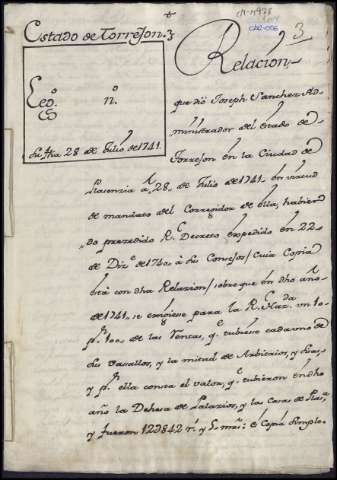 Estado de Torrejon.
3
Relacion
Leg.º n.º
Su fha 28 de Julio de 1741.
que dio Joseph Sanchez Ad-
ministrador del estado de
Torrejon en la Ciudad de
Plasencia a 28. de Julio de 1741. en virtud
de mandato del Corregidor de ella, habien
do prezedido R.l Decreto expedido en 22
de Diz.e de 1740. a su Consejo/ Cuia Copia
está con dha Relazion/ sobre que en dho año
de 1741. se exigiese para la R.l Haz.da un 10
p.r 100. de las Rentas, q.e tubiese cada uno de
sus vasallos, y la mitad de Arbitrios, y
y p.r ella consta el valor, q.e tubieron en dho
año la Dehesa de Palazios, y las Casas de Plas.a
y fueron 129842 r.s y 5 mrs: es Copia simple